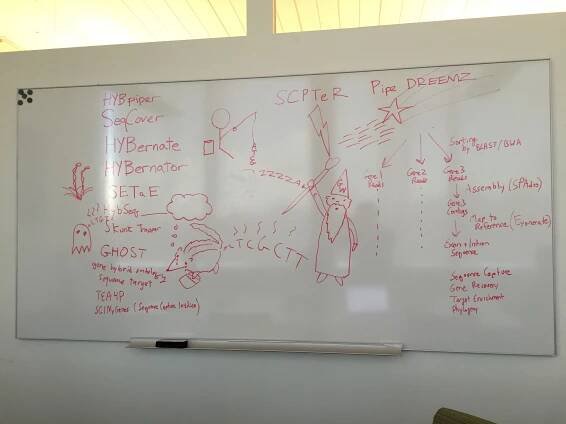 HYBpiper
SeqCover
HYBernate
HYBernator
SETaE
HybSeq
Skunk
GHOST
gene hybrid ontology
Sequence Target
TEA4P
SCINyGenes (Sequence Capture
SCPTeR
ZZZZA
TCGCTT
Pipe DREEMZ
Sorting
by BLAST/BWA
Gene 1
Reads
Gene 2
Reads
Gene 3
Reads
Assembly (SPAdes)
Gene 3
Contigs
Map to
Reference (Exonerate)
Exon + Intron
Sequence
Sequence Capture
Gene Recovery
Target Enrichment
Phylogeny